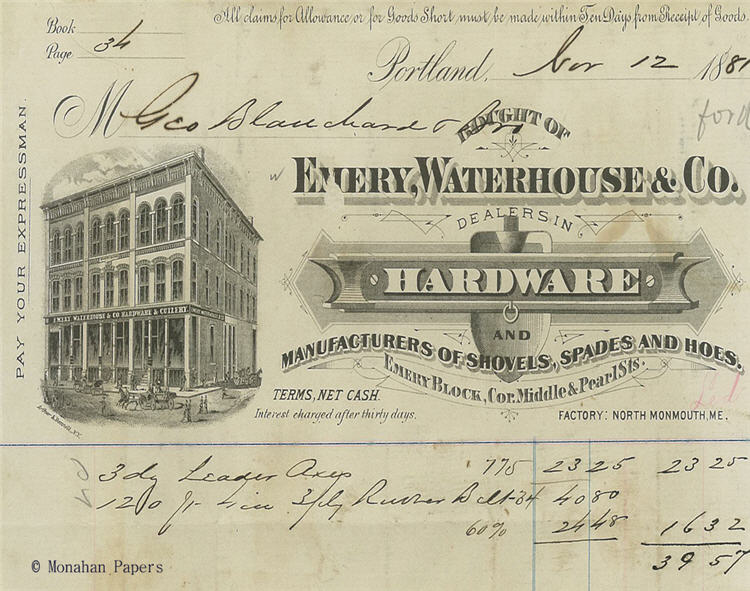 All claims for Allowance or for Goods Short must be made within Ten Days from Receipt of Goods.
Book
Page 34
Portland, Nov 12 1881
M Geo Blanchard & Bro
ford
BOUGHT OF
EMERY, WATERHOUSE & CO.
DEALERS IN
HARDWARE
AND
MANUFACTURERS OF SHOVELS, SPADES AND HOES.
EMERY BLOCK, Cor. Middle & Pearl Sts.
TERMS, NET CASH.
Interest charged after thirty days.
FACTORY: NORTH MONMOUTH, ME.
PAY YOUR EXPRESSMAN.
EMERY WATERHOUSE & CO. HARDWARE & CUTLERY.
3 dz Leader Axes 775 23 25 23 25
120 ft 4 in 3 ply Rubber Belt 34 40 80
60% 24 48 16 32
39 57
© Monahan Papers